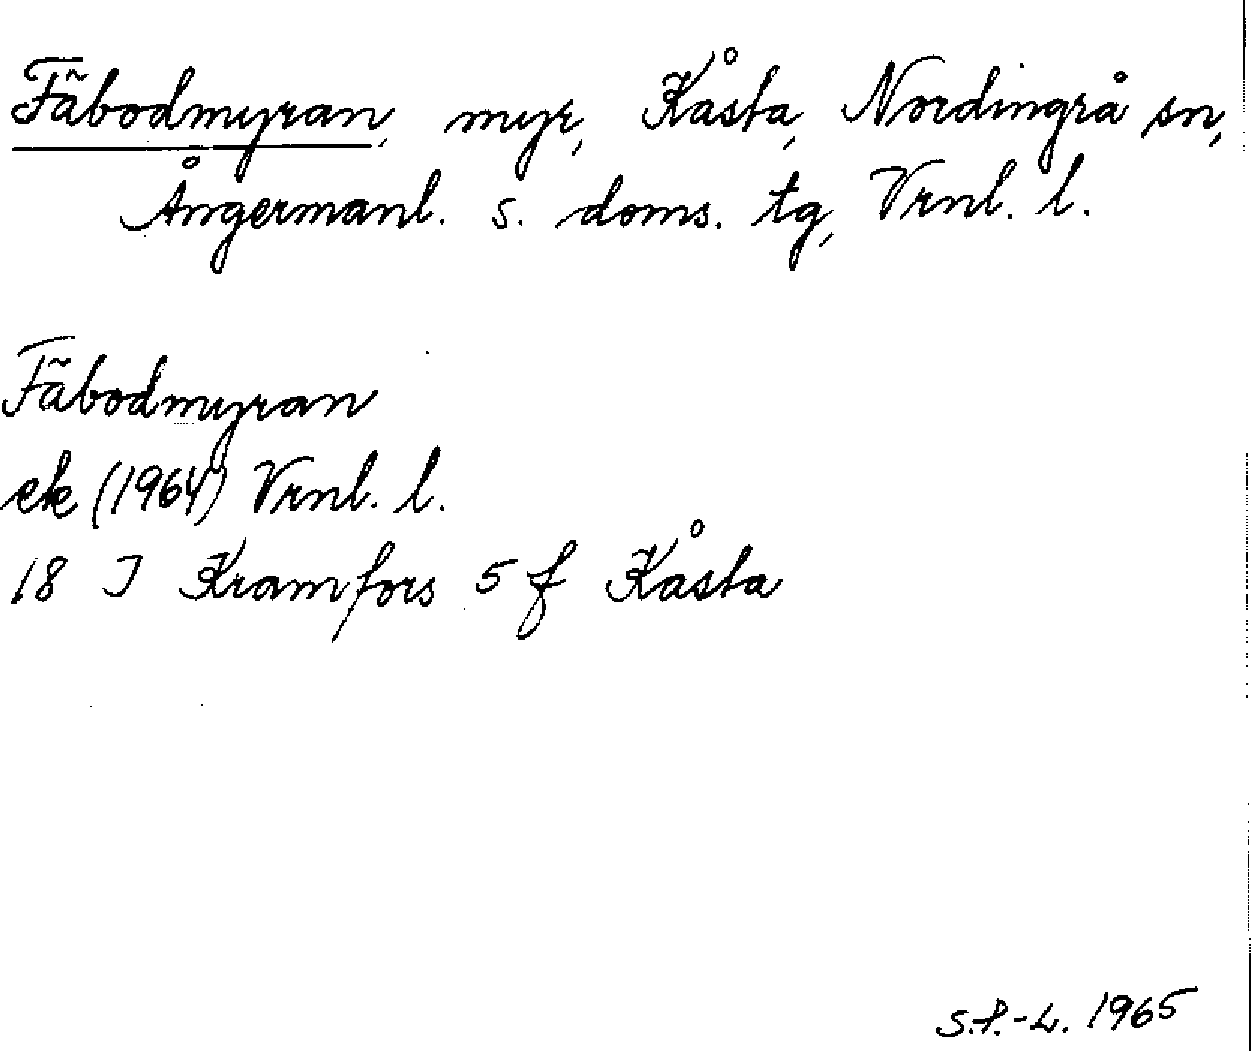 Fäbodmyran, myr, Kåsta, Nordingrå sn,
Ångermanl. s. doms. tg, Vrnl. l.
Fäbodmyran
ek (1964) Vrnl. l.
18 J Kramfors 5 f Kåsta
S.P.-L. 1965